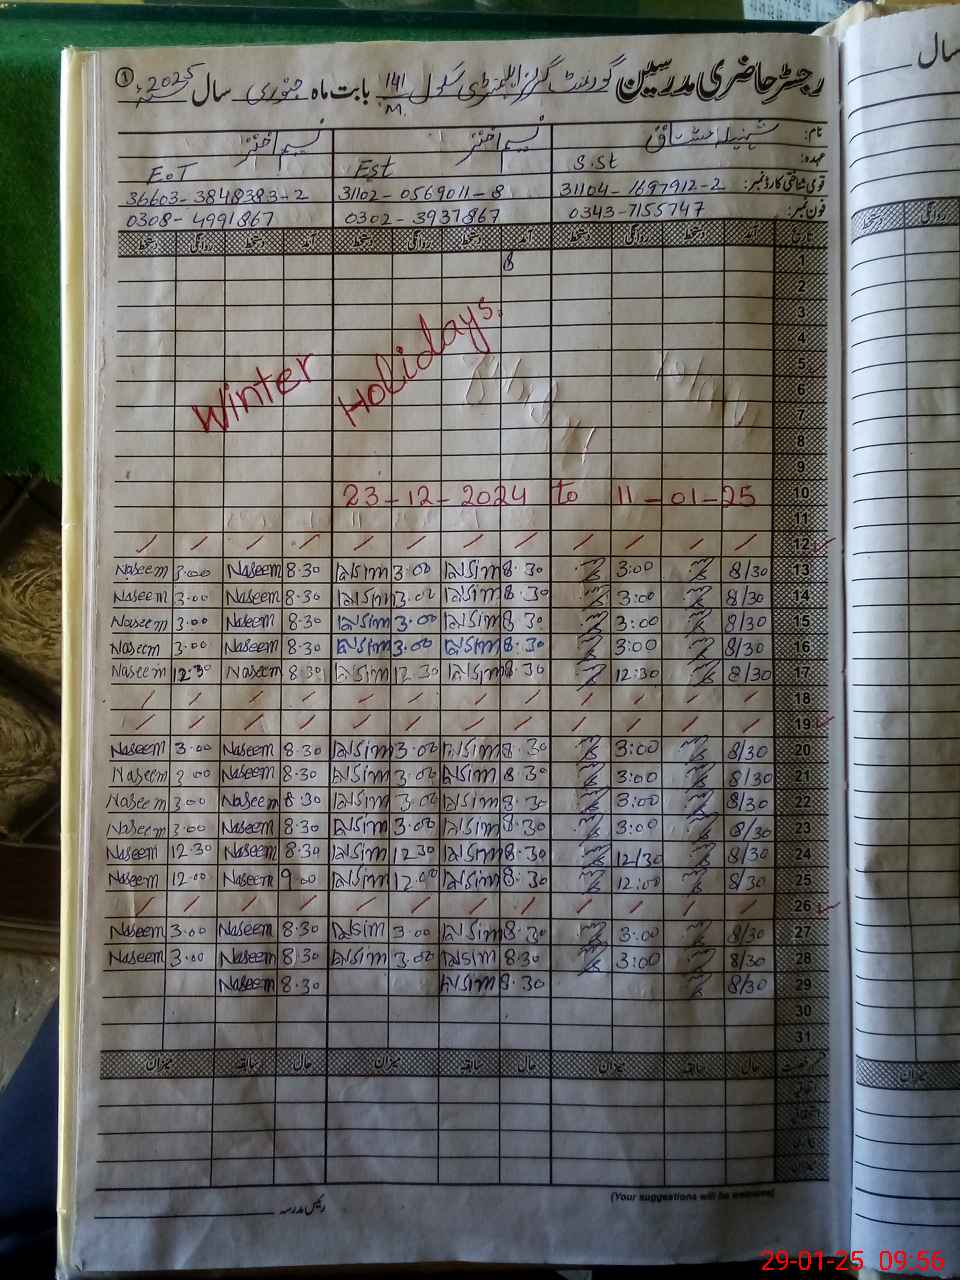 رجسٹر حاضری مدرسین گورنمنٹ گرلز ایلیمنٹری سکول 141/M. بابت ماہ جنوری سال 2025ء ①
نام: شہنیلہ مشتاق نسیم اختر نسیم اختر
عہدہ: S.St Est E.T
قومی شناختی کارڈ نمبر: 31104-1697912-2 31102-0569011-8 36603-3848383-2
فون نمبر: 0343-7155747 0302-3937867 0308-4991867
آمد دستخط روانگی دستخط آمد دستخط روانگی دستخط آمد دستخط روانگی دستخط
1 8
2
3
4
5
6
7
8
9
Winter Holidays.
10 23-12-2024 to 11-01-25
11
12
Naseem 3.00 Naseem 8.30 Nsim 3.00 Nsim 8.30 3:00 8/30 13
Naseem 3.00 Naseem 8.30 Nsim 3.00 Nsim 8.30 3:00 8/30 14
Naseem 3.00 Naseem 8.30 Nsim 3.00 Nsim 8.30 3:00 8/30 15
Naseem 3.00 Naseem 8.30 Nsim 3.00 Nsim 8.30 3:00 8/30 16
Naseem 12.30 Naseem 8.30 Nsim 12.30 Nsim 8.30 12:30 8/30 17
18
19
Naseem 3.00 Naseem 8.30 Nsim 3.00 Nsim 8.30 3:00 8/30 20
Naseem 3.00 Naseem 8.30 Nsim 3.00 Nsim 8.30 3:00 8/30 21
Naseem 3.00 Naseem 8.30 Nsim 3.00 Nsim 8.30 3:00 8/30 22
Naseem 3.00 Naseem 8.30 Nsim 3.00 Nsim 8.30 3:00 8/30 23
Naseem 12.30 Naseem 8.30 Nsim 12.30 Nsim 8.30 12/30 8/30 24
Naseem 12.00 Naseem 9.00 Nsim 12.00 Nsim 8.30 12:00 8/30 25
26
Naseem 3.00 Naseem 8.30 Nsim 3.00 Nsim 8.30 3:00 8/30 27
Naseem 3.00 Naseem 8.30 Nsim 3.00 Nsim 8.30 3:00 8/30 28
Naseem 8.30 Nsim 8.30 8/30 29
30
31
رخصت حال سابقہ میزان حال سابقہ میزان حال سابقہ میزان
اتفاقی
میزان
(Your suggestions will be welcome)
رئیس مدرسہ
سال
روانگی
دستخط
میزان
29-01-25 09:56